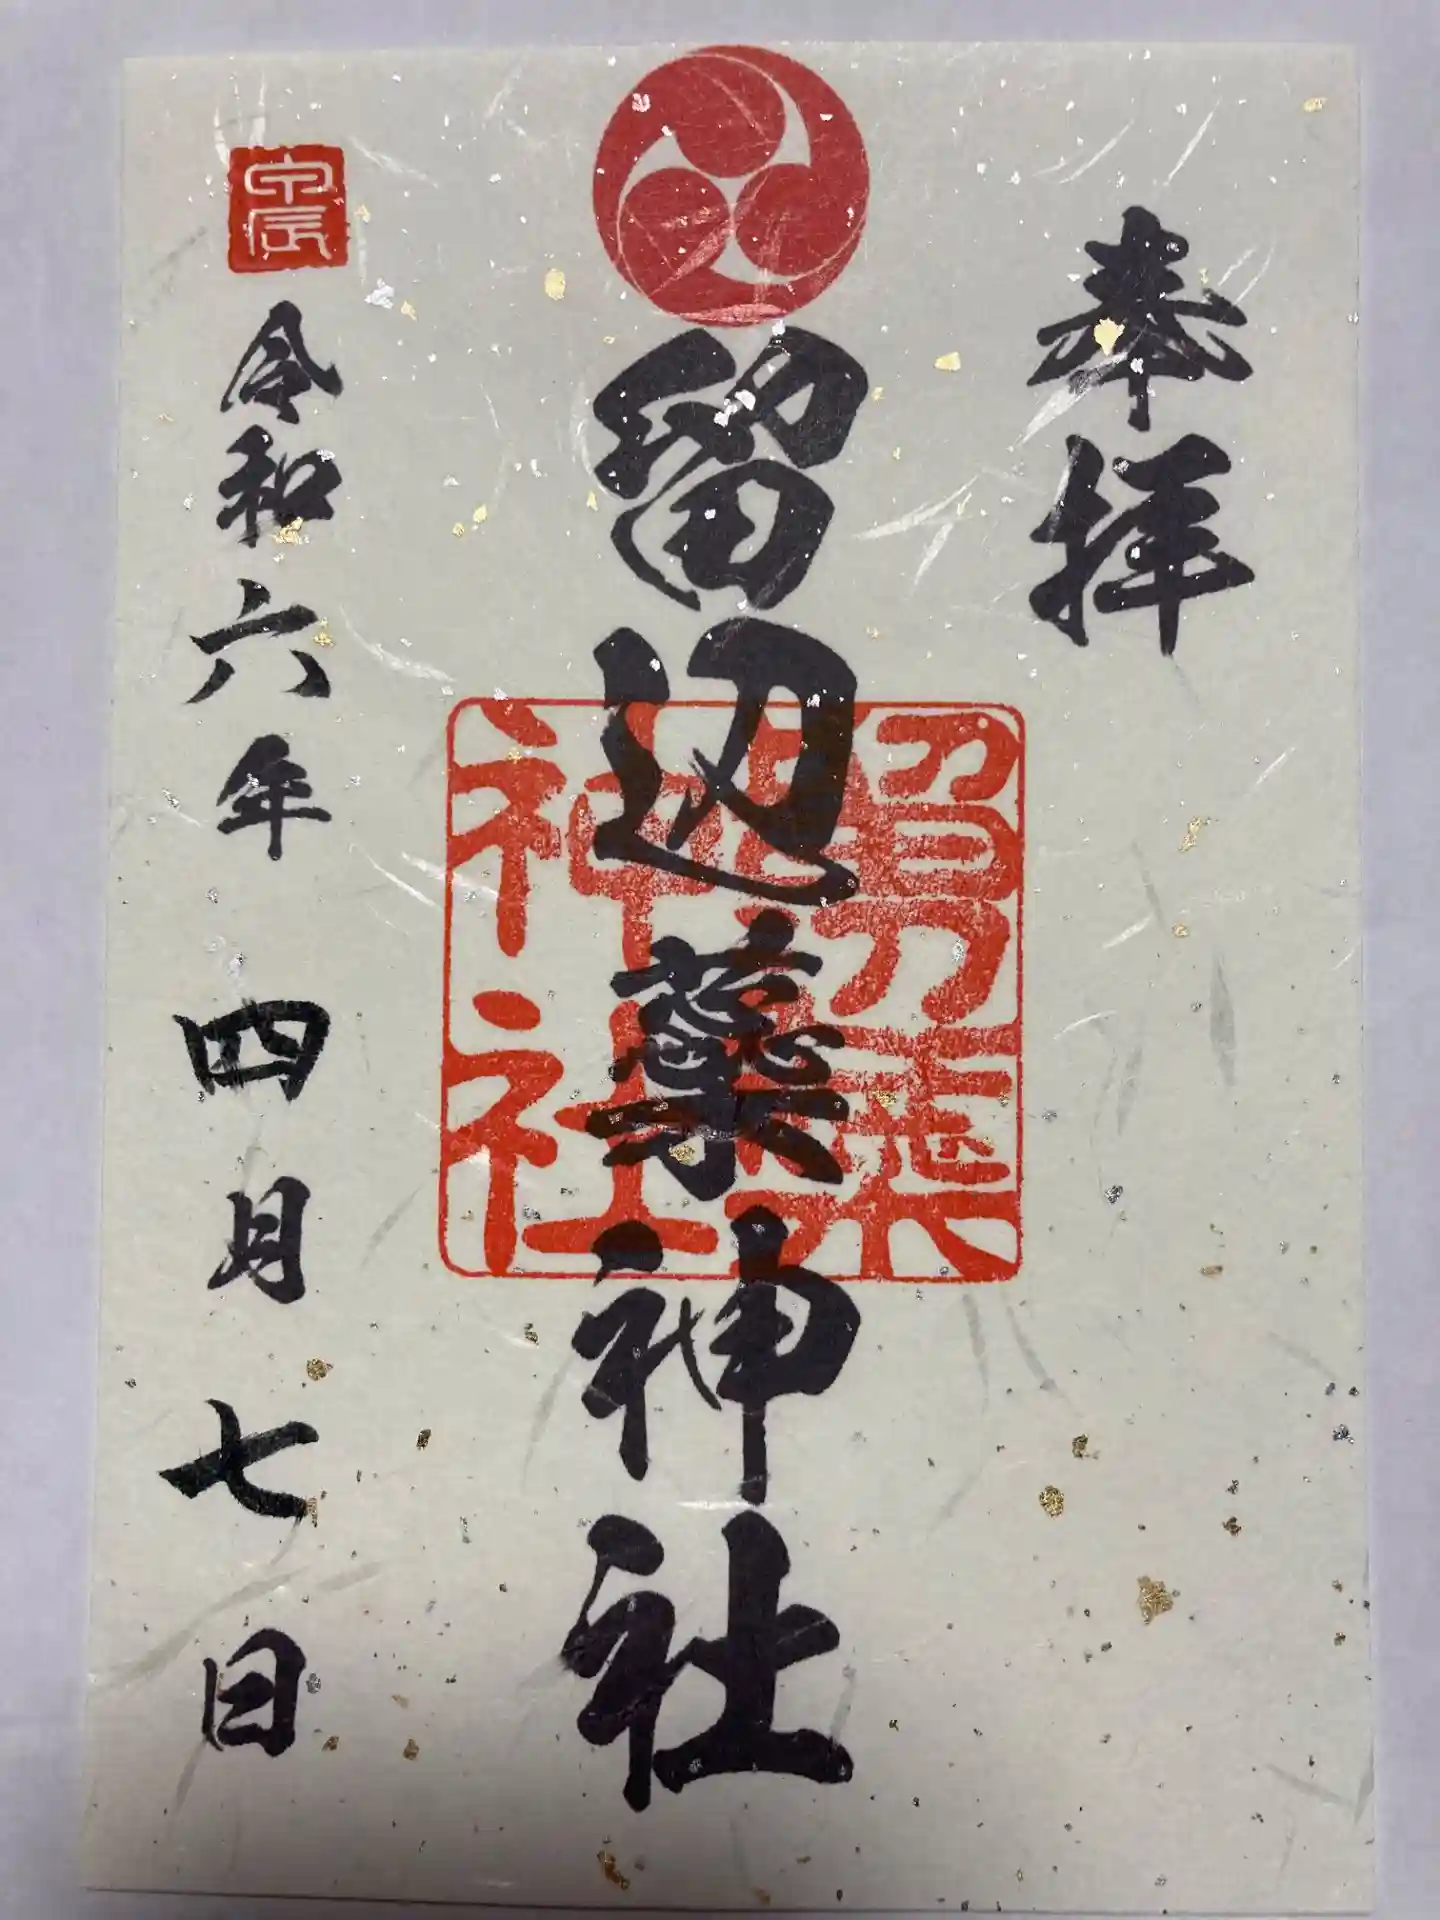 奉拝
留辺蘂神社
留辺蘂
神社
甲辰
令和六年四月七日